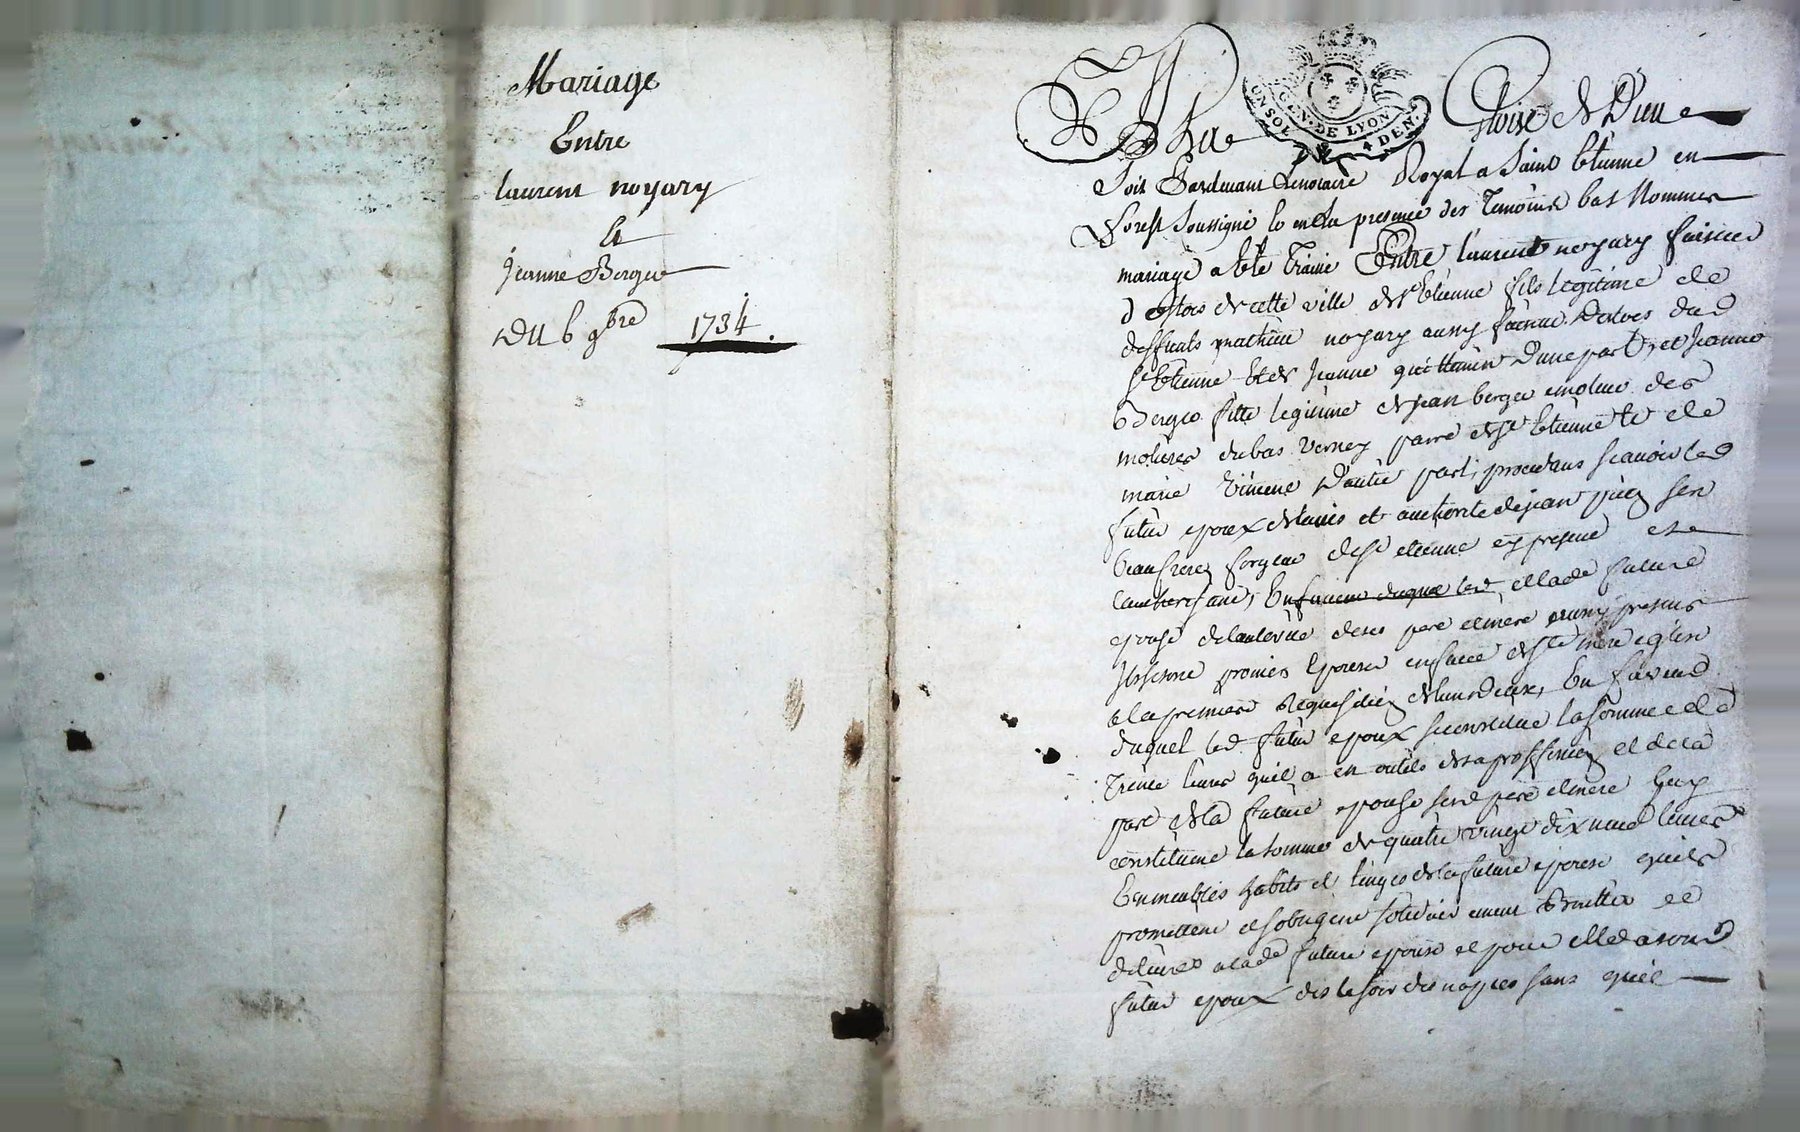 Mariage
Entre
laurent noyary
Et
Jeanne Berger
Du 6 9bre 1734.
A La Gloire de Dieu
GEN. DE LYON
UN SOL 4 DEN.
Soit Pardevant Le notaire Royal a Saint Etienne en
forest soussigné et en la presence des Temoins bas Nommes
mariage a ete Traitté Entre laurent noyary faiseur
de cette ville de st Etienne fils legitime de
deffunts mathieu noyary aussy faiseur dud
st Etienne et de Jeanne d'une part, et Jeanne
Berger fille legitime de jean berger emoleur des
molieres du bas vernay parre de st Etienne et de
marie D'autre part, procedans scavoir led
futur epoux de l'avis et authorité de jean son
beaufrere forgeur de st etienne cy present et
l'authorisant, En faveur duquel led et lade future
epouse de l'authorité de ses pere et mere aussy presens
promis Epouser en face de ste mere eglise
a la premiere Requisition de lun deux, En faveur
duquel led futur epoux se constitue la somme de
Trente livres quil a en outils de sa proffession et de la
part de la future epouse sesd pere et mere luy
constituent la somme de quatre vingt dix neuf livres
En meubles habits et linges de la future epouse quils
promettent et sobligent solidairement Remettre et
delivrer a lade future epouse et pour elle a sond
futur epoux des le soir des nopces sans quil